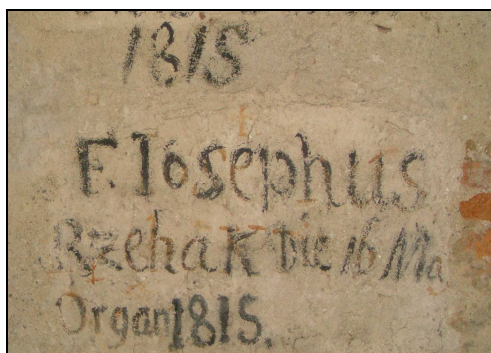 1815
F. Iosephus
Rzehak Die 16 Ma
Organ 1815.